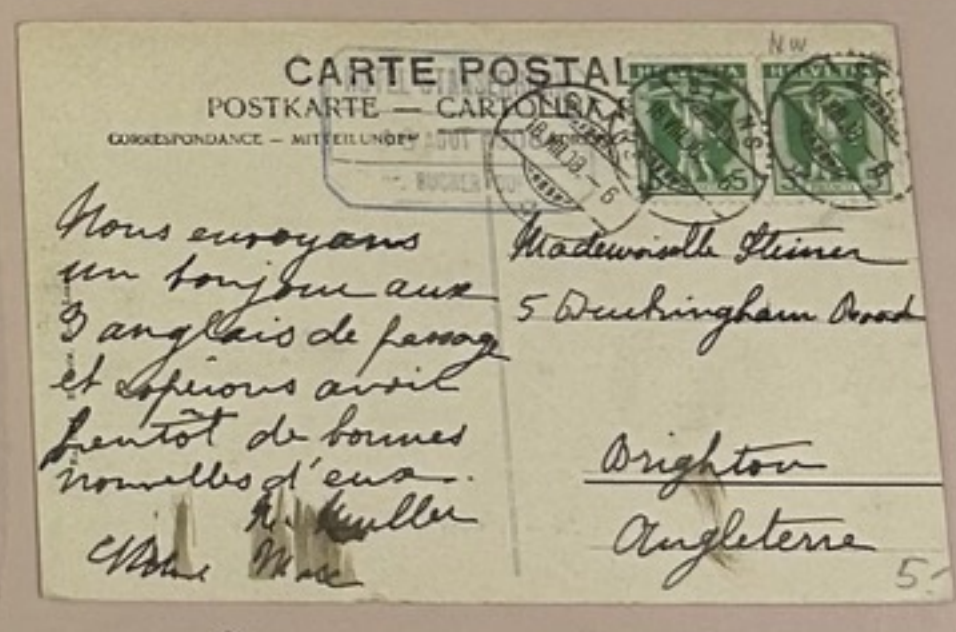 NW
CARTE POSTAL
POSTKARTE — CARTOLINA
CORRESPONDANCE — MITTEILUNGEN
HELVETIA
HELVETIA
HOTEL
AOUT
BUCHER
18.VIII.08.–6
5
5
Nous envoyons
un bonjour aux
3 anglais de passage
et espérons avoir
bientôt de bonnes
nouvelles d'eux.
Muller
Mademoiselle Steiner
5 Buckingham Road
Brighton
Angleterre
5.-